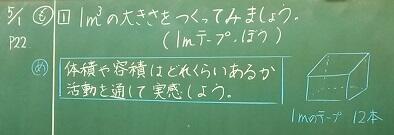 5/1 も 1 1m³の大きさをつくってみましょう.
P22 (1mテープ.ぼう)
め 体積や容積はどれくらいあるか
活動を通して実感しよう.
1mのテープ 12本